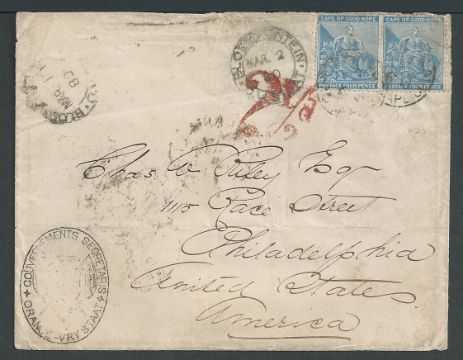 CAPE OF GOOD HOPE
POSTAGE FOUR PENCE
CAPE OF GOOD HOPE
POSTAGE FOUR PENCE
BLOEMFONTEIN
MAR 2
MAR
Chas W Riley Esq
1115 Race Street
Philadelphia
United States
America
GOUVERNEMENTS SECRETARIS
ORANJE-VRYSTAAT